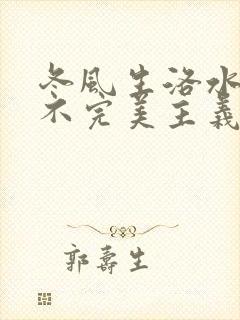 冬風生洛水
不完美主義
郭壽生